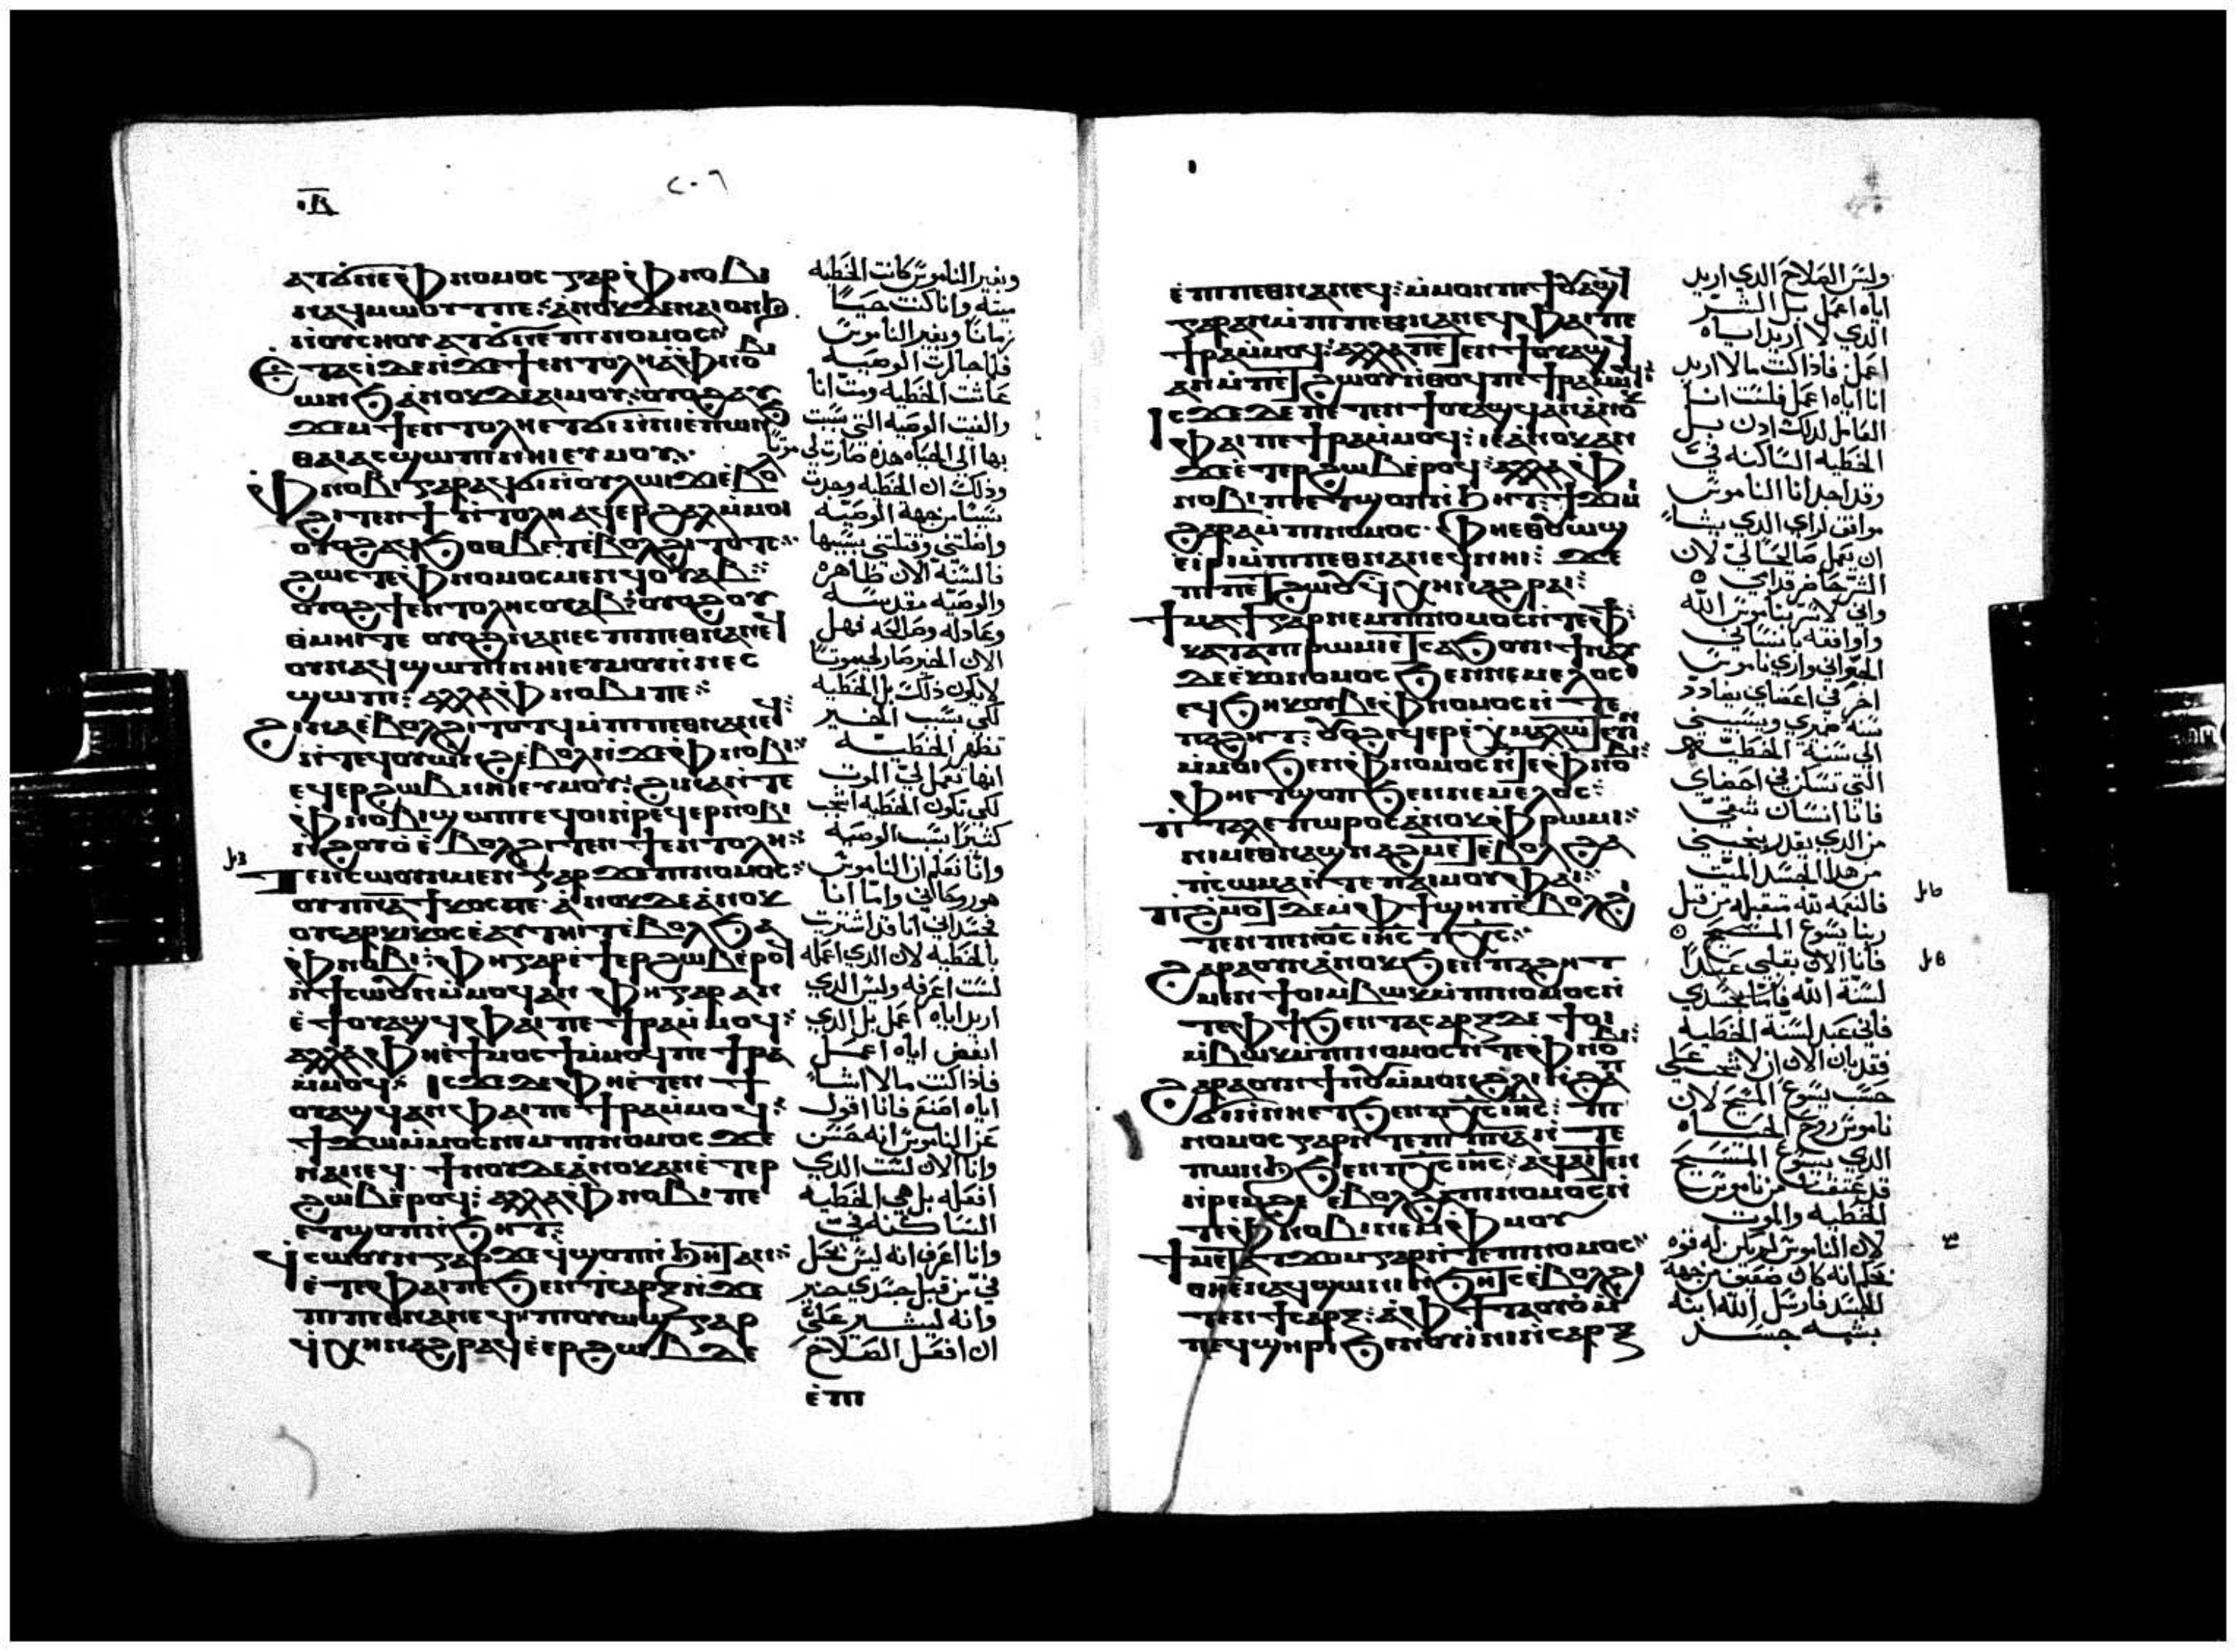 ⲁⲧϭⲛⲉ ⲫⲛⲟⲙⲟⲥ ⲅⲁⲣ ⲫⲛⲟⲃⲓ
ⲛⲁϥⲙⲱⲟⲩⲧ ⲡⲉ: ⲁⲛⲟⲕ ⲇⲉ ⲛⲁⲓⲱⲛϧ
ⲛⲟⲩⲥⲏⲟⲩ ⲁⲧϭⲛⲉ ⲡⲓⲛⲟⲙⲟⲥ
ⲉⲧⲁⲥⲓ ⲇⲉ ⲛϫⲉ ϯⲉⲛⲧⲟⲗⲏ ⲁ ⲫⲛⲟⲃⲓ
ⲱⲛϧ ⲁⲛⲟⲕ ⲇⲉ ⲁⲓⲙⲟⲩ: ⲟⲩⲟϩ ⲁⲩ
ϫⲉⲙ ϯⲉⲛⲧⲟⲗⲏ ⲉⲧϭⲓ ⲉⲡⲱⲛϧ
ⲑⲁⲓ ⲁⲥϣⲱⲡⲓ ⲛⲏⲓ ⲉⲩⲙⲟⲩ
ⲫⲛⲟⲃⲓ ⲅⲁⲣ ⲁϥϭⲓ ⲛⲟⲩⲗⲱⲓϫⲓ ⲉⲃⲟⲗ
ϩⲓⲧⲉⲛ ϯⲉⲛⲧⲟⲗⲏ ⲁϥⲉⲣϩⲁⲗ ⲙⲙⲟⲓ
ⲟⲩⲟϩ ⲁϥϧⲟⲑⲃⲉⲧ ⲉⲃⲟⲗ ϩⲓⲧⲟⲧⲥ
ϩⲱⲥⲧⲉ ⲫⲛⲟⲙⲟⲥ ⲙⲉⲛ ϥⲟⲩⲁⲃ
ⲟⲩⲟϩ ϯⲉⲛⲧⲟⲗⲏ ⲥⲟⲩⲁⲃ: ⲟⲩⲟϩ ⲟⲩ
ⲑⲙⲏⲓ ⲧⲉ ⲟⲩⲟϩ ⲛⲁⲛⲉⲥ ⲡⲓⲡⲉⲑⲛⲁⲛⲉϥ
ⲟⲩⲛ ⲁϥϣⲱⲡⲓ ⲛⲏⲓ ⲉⲩⲙⲟⲩ ⲛⲛⲉⲥ
ϣⲱⲡⲓ: ⲁⲗⲗⲁ ⲫⲛⲟⲃⲓ ⲡⲉ
ϩⲓⲛⲁ ⲉⲃⲟⲗ ϩⲓⲧⲟⲧϥ ⲙⲡⲓⲡⲉⲑⲛⲁⲛⲉϥ
ⲛⲧⲉϥⲟⲩⲱⲛϩ ⲉⲃⲟⲗ ⲛϫⲉ ⲫⲛⲟⲃⲓ
ⲉϥⲉⲣϩⲱⲃ ⲛⲏⲓ ⲉⲩⲙⲟⲩ: ϩⲓⲛⲁ ⲛⲧⲉ
ⲫⲛⲟⲃⲓ ϣⲱⲡⲓ ⲉϥⲟⲓ ⲛⲣⲉϥⲉⲣⲛⲟⲃⲓ
ⲛϩⲟⲩⲟ ⲉⲃⲟⲗ ϩⲓⲧⲉⲛ ϯⲉⲛⲧⲟⲗⲏ
ⲧⲉⲛⲥⲱⲟⲩⲛ ⲙⲉⲛ ⲅⲁⲣ ϫⲉ ⲡⲓⲛⲟⲙⲟⲥ
ⲟⲩⲡⲛⲁⲧⲓⲕⲟⲥ ⲡⲉ ⲁⲛⲟⲕ ⲇⲉ ⲁⲛⲟⲕ
ⲟⲩⲥⲁⲣⲕⲓⲕⲟⲥ ⲉⲁⲩⲧⲏⲓⲧ ⲉⲃⲟⲗ ϧⲁ
ⲫⲛⲟⲃⲓ: ⲫⲏ ⲅⲁⲣ ⲉϯⲉⲣϩⲱⲃ ⲉⲣⲟϥ
ⲛϯⲥⲱⲟⲩⲛ ⲙⲙⲟϥ ⲁⲛ ⲫⲏ ⲅⲁⲣ ⲁⲛ
ⲉϯⲟⲩⲁϣϥ ⲫⲁⲓ ⲡⲉ ϯⲣⲁ ⲙⲙⲟϥ
ⲁⲗⲗⲁ ⲫⲏ ⲉϯⲙⲟⲥϯ ⲙⲙⲟϥ ⲡⲉ ϯⲣⲁ
ⲙⲙⲟϥ: ⲓⲥϫⲉ ⲇⲉ ⲫⲏ ⲉⲧⲉⲛϯ
ⲟⲩⲁϣϥ ⲁⲛ ⲫⲁⲓ ⲡⲉ ϯⲣⲁ ⲙⲙⲟϥ
ϯϫⲱ ⲙⲙⲟⲥ ⲛⲉⲙ ⲡⲓⲛⲟⲙⲟⲥ ϫⲉ
ⲛⲁⲛⲉϥ ϯⲛⲟⲩ ⲇⲉ ⲁⲛⲟⲕ ⲁⲛ ⲉⲧⲉⲣ
ϩⲱⲃ ⲉⲣⲟϥ: ⲁⲗⲗⲁ ⲫⲛⲟⲃⲓ ⲡⲉ
ⲉⲧϣⲟⲡ ⲛϧⲏⲧ:
ϯⲥⲱⲟⲩⲛ ⲅⲁⲣ ϫⲉ ϥϣⲟⲡ ⲛϧⲏⲧ ⲁⲛ
ⲉⲧⲉ ⲫⲁⲓ ⲡⲉ ϧⲉⲛ ⲧⲁⲥⲁⲣⲝ ⲛϫⲉ
ⲡⲓⲡⲉⲑⲛⲁⲛⲉϥ ⲡⲓⲟⲩⲱϣ ⲅⲁⲣ
ϥⲭⲏ ⲛⲁϩⲣⲁϥ ⲉⲉⲣϩⲱⲃ ⲇⲉ
ⲉⲡⲓ
وبغير الناموس كانت الخطيه
ميته وانا كنت حيا
زمانا وبغير الناموس
فلما جات الوصيه
عاشت الخطيه ومت انا
والفيت الوصيه التي سبب
بها الى الحياه هذه صارت لي موتا
وذلك ان الخطيه وجدت
سببا من جهة الوصيه
واضلتني وقتلتني بسببها
فالسنه الان طاهره
والوصيه مقدسه
وعادله وصالحه فهل
الان الخير صار لي موتا
لا يكون ذلك بل الخطيه
لكي بسبب الخير
تظهر الخطيه
انها تعمل لي الموت
لكي تكون الخطيه
كثيرا بسبب الوصيه
وانا نعلم ان الناموس
هو روحاني واما انا
فجسداني انا قد اشتريت
بالخطيه لان الذي اعمله
لست اعرفه وليس الذي
اريد اياه اعمل بل الذي
ابغض اياه اعمل
فاذا كنت ما لا اشا
اياه اصنع فانا اقول
عن الناموس انه حسن
وانا الان لست الذي
افعله بل هي الخطيه
الساكنه في
وانا اعرف انه ليس يحل
في من قبل جسدي خير
وانه ليتيسر علي
ان افعل الصلاح
ⲉⲡⲓⲡⲉⲑⲛⲁⲛⲉϥ: ⲙⲙⲟⲛ ⲡⲉϯⲟⲩⲁϣϥ
ⲅⲁⲣ ⲁⲛ ⲙⲡⲓⲡⲉⲑⲛⲁⲛⲉϥ ⲫⲁⲓ ⲡⲉ
ϯⲣⲁ ⲙⲙⲟϥ: ⲁⲗⲗⲁ ⲡⲉⲧⲉⲛϯⲟⲩⲁϣϥ
ⲁⲛ ⲙⲡⲉⲧϩⲱⲟⲩ ⲛⲑⲟϥ ⲡⲉ ϯⲣⲁ ⲙⲙⲟϥ
ⲓⲥϫⲉ ⲇⲉ ⲡⲉⲧⲉⲛϯⲟⲩⲁϣϥ ⲁⲛ ⲁⲛⲟⲕ
ⲫⲁⲓ ⲡⲉ ϯⲣⲁ ⲙⲙⲟϥ: ⲓⲉ ⲁⲛⲟⲕ ⲁⲛ
ϫⲉ ⲉⲧⲉⲣϩⲱⲃ ⲉⲣⲟϥ: ⲁⲗⲗⲁ ⲫ
ⲛⲟⲃⲓ ⲡⲉⲧϣⲟⲡ ⲛϧⲏⲧ: ϯϫⲓⲙⲓ
ϩⲁⲣⲁ ⲙⲡⲓⲛⲟⲙⲟⲥ ⲫⲏ ⲉⲑⲟⲩⲱϣ
ⲉⲓⲣⲓ ⲙⲡⲓⲡⲉⲑⲛⲁⲛⲉϥ ⲛⲏⲓ: ϫⲉ
ⲡⲓⲡⲉⲧϩⲱⲟⲩ ϥⲭⲏ ⲛⲁϩⲣⲁⲓ:
ϯⲙⲁϯ ⲅⲁⲣ ⲛⲉⲙ ⲡⲓⲛⲟⲙⲟⲥ ⲛⲧⲉ ⲫϯ
ⲕⲁⲧⲁ ⲡⲓⲣⲱⲙⲓ ⲉⲧⲥⲁϧⲟⲩⲛ ϯⲛⲁⲩ
ⲇⲉ ⲉⲕⲉⲛⲟⲙⲟⲥ ϧⲉⲛ ⲛⲁⲙⲉⲗⲟⲥ
ⲉϥϯ ⲟⲩⲃⲉ ⲫⲛⲟⲙⲟⲥ ⲛⲧⲉ
ⲡⲁϩⲏⲧ: ⲟⲩⲟϩ ⲉϥⲉⲣⲉⲭⲙⲁⲗⲱⲧⲉⲩⲓⲛ
ⲙⲙⲟⲓ ϧⲉⲛ ⲫⲛⲟⲙⲟⲥ ⲛⲧⲉ ⲫⲛⲟⲃⲓ
ⲫⲏ ⲉⲧϣⲟⲡ ϧⲉⲛ ⲛⲁⲙⲉⲗⲟⲥ
ⲡⲓⲧⲁⲗⲉⲡⲱⲣⲟⲥ ⲁⲛⲟⲕ ϧⲁ ⲡⲓⲣⲱⲙⲓ
ⲛⲓⲙ ⲉⲑⲛⲁϣⲛⲁϩⲙⲉⲧ ⲉⲃⲟⲗ ϧⲁ
ⲡⲓⲥⲱⲙⲁ ⲛⲧⲉ ⲡⲁⲓⲙⲟⲩ ⲫⲁⲓ
ⲡⲓϩⲙⲟⲧ ⲇⲉ ⲙⲫϯ ϣⲏⲡ ⲉⲃⲟⲗ ϩⲓ
ⲧⲉⲛ ⲡⲉⲛⲟ̅ⲥ̅ ⲓⲏ̅ⲥ̅ ⲡⲭ̅ⲥ̅
ϩⲁⲣⲁ ⲟⲩⲛ ⲁⲛⲟⲕ ϧⲉⲛ ⲡⲁϩⲏⲧ
ⲙⲉⲛ ϯⲟⲓ ⲙⲃⲱⲕ ⲙⲡⲓⲛⲟⲙⲟⲥ ⲛ
ⲧⲉ ⲫϯ ϧⲉⲛ ⲧⲁⲥⲁⲣⲝ ⲇⲉ ϯⲟⲓ
ⲙⲃⲱⲕ ⲙⲡⲓⲛⲟⲙⲟⲥ ⲛⲧⲉ ⲫⲛⲟⲃⲓ
ϩⲁⲣⲁ ⲟⲩⲛ ϯⲛⲟⲩ ⲙⲙⲟⲛ ϩⲗⲓ ⲛϩⲁⲡ
ϭⲓ ⲛⲛⲏ ⲉⲧϧⲉⲛ ⲡⲭ̅ⲥ̅ ⲓⲏ̅ⲥ̅: ⲡⲓ
ⲛⲟⲙⲟⲥ ⲅⲁⲣ ⲛⲧⲉ ⲡⲓⲡⲛ̅ⲁ̅ ⲛⲧⲉ
ⲡⲱⲛϧ ϧⲉⲛ ⲡⲭ̅ⲥ̅ ⲓⲏ̅ⲥ̅: ⲁϥⲁⲓⲧⲉⲛ
ⲛⲣⲉⲙϩⲉ ⲉⲃⲟⲗ ϩⲁ ⲡⲓⲛⲟⲙⲟⲥ ⲛ
ⲧⲉ ⲫⲛⲟⲃⲓ ⲛⲉⲙ ⲫⲙⲟⲩ
ϯⲙⲉⲧⲁⲧϫⲟⲙ ⲅⲁⲣ ⲛⲧⲉ ⲡⲓⲛⲟⲙⲟⲥ
ⲑⲏ ⲉⲛⲁϥϣⲱⲛⲓ ⲛϧⲏⲧⲥ ⲉⲃⲟⲗ ϩⲓ
ⲧⲉⲛ ϯⲥⲁⲣⲝ: ⲁ ⲫϯ ⲧⲁⲟⲩⲟ ⲙ
ⲡⲉϥϣⲏⲣⲓ ϧⲉⲛ ⲟⲩⲓⲛⲓ ⲛⲥⲁⲣⲝ
وليس الصلاح الذي اريد
اياه اعمل بل الشر
الذي لا اريد اياه
اعمل فاذا كنت ما لا اريد
انا اياه اعمل فلست انا
الفاعل لذلك اذن بل
الخطيه الساكنه في
وقد اجد انا الناموس
موافق لراي الذي يشا
ان يعمل صالحا لي لان
الشر حاضر قدامي
واني لاسر بناموس الله
واوافقه بانساني
الجواني واري ناموس
اخر في اعضاي يضادد
سنة ضميري ويسبيني
الى سنة الخطيه
التي تسكن في اعضاي
فانا انسان شقي
من الذي يقدر ينجيني
من هذا الجسد الميت
فالنعمه لله متقبله من قبل
ربنا يسوع المسيح
فانا الان بقلبي عبدا
لسنة الله فاما بجسدي
فاني عبد لسنة الخطيه
فقد بان الان ان لا شجب على
حسب يسوع المسيح لان
ناموس روح الحياه
الذي بيسوع المسيح
قد عتقنا من ناموس
الخطيه والموت
لان الناموس لم يكن له قوه
انه كان ضعيف من جهة
الجسد فارسل الله ابنه
بشبه جسد